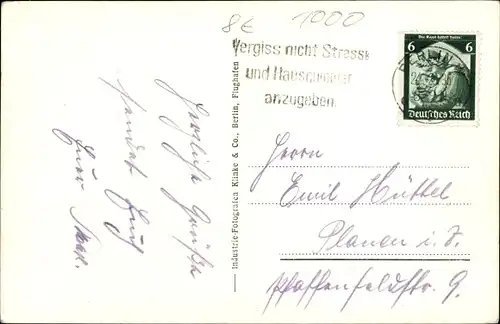 8€ 1000
Vergiss nicht Strasse
und Hausnummer
anzugeben
Die Saar kehrt heim!
6 6
Deutsches Reich
Herzliche Grüße
sendet Euch
Euer Max.
Industrie-Fotografen Klinke & Co., Berlin, Flughafen
Herrn
Emil Hüttel
Plauen i. V.
Pfaffenfeldstr. 9.